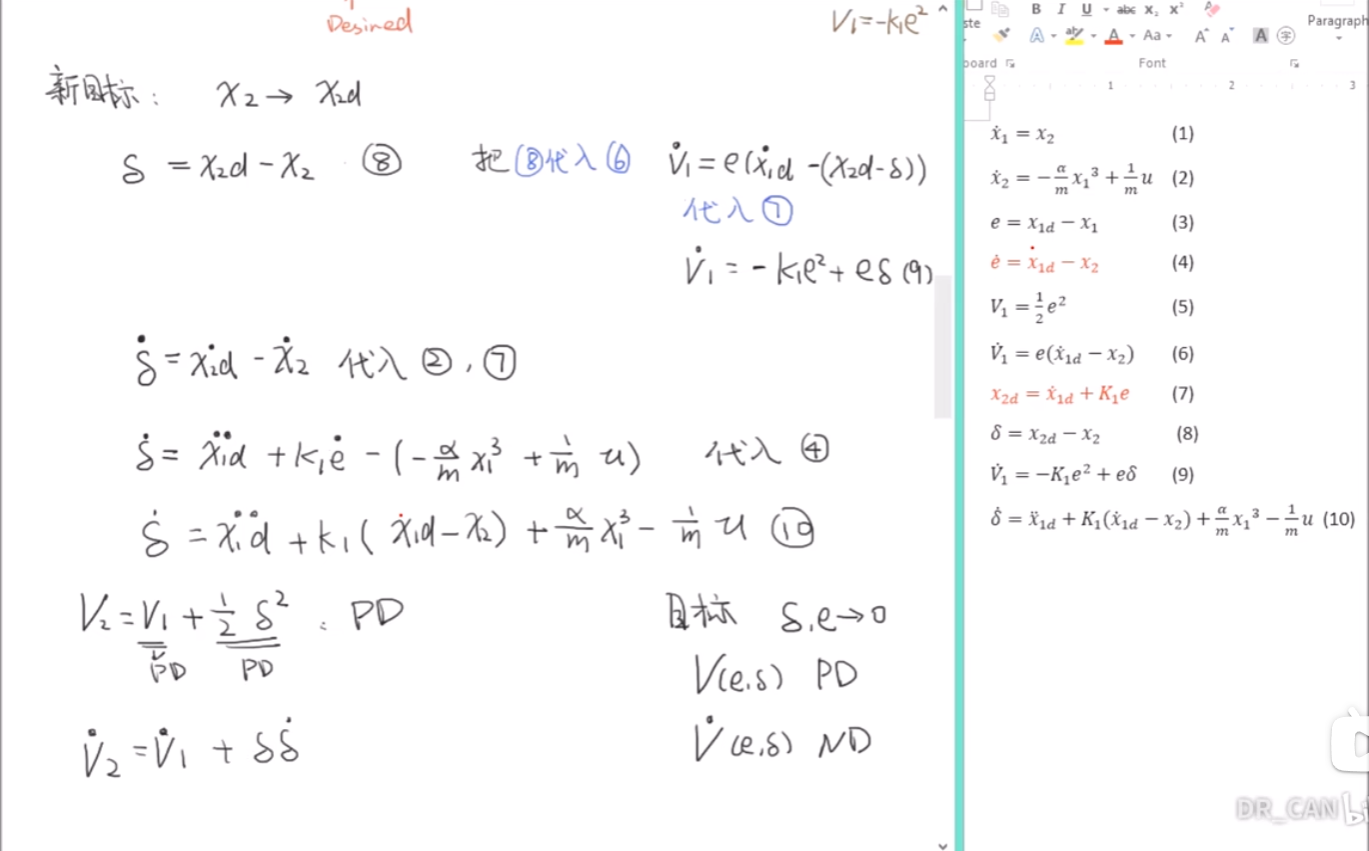 Desired
V₁=-k₁e²
新目标: x₂→ x₂d
δ = x₂d - x₂ ⑧ 把⑧代入⑥ V̇₁ = e(ẋ₁d -(x₂d-δ))
代入⑦
V̇₁ = - k₁e² + eδ (9)
δ̇ = ẋ₂d - ẋ₂ 代入②,⑦
δ̇ = ẍ₁d + k₁ė - (-α/m x₁³ + 1/m u) 代入④
δ̇ = ẍ₁d + k₁( ẋ₁d - x₂) + α/m x₁³ - 1/m u ⑩
V₂ = V₁ + 1/2 δ² : PD
PD PD
目标 δ,e→0
V(e,δ) PD
V̇₂ = V̇₁ + δδ̇
V̇(e,δ) ND
ste
B I U abc x₂ x²
A aby A Aa A A A 字
Paragraph
board
Font
1 2 3
ẋ₁ = x₂ (1)
ẋ₂ = -α/m x₁³ + 1/m u (2)
e = x₁d - x₁ (3)
ė = ẋ₁d - x₂ (4)
V₁ = 1/2 e² (5)
V̇₁ = e(ẋ₁d - x₂) (6)
x₂d = ẋ₁d + K₁e (7)
δ = x₂d - x₂ (8)
V̇₁ = -K₁e² + eδ (9)
δ̇ = ẍ₁d + K₁(ẋ₁d - x₂) + α/m x₁³ - 1/m u (10)
DR_CAN